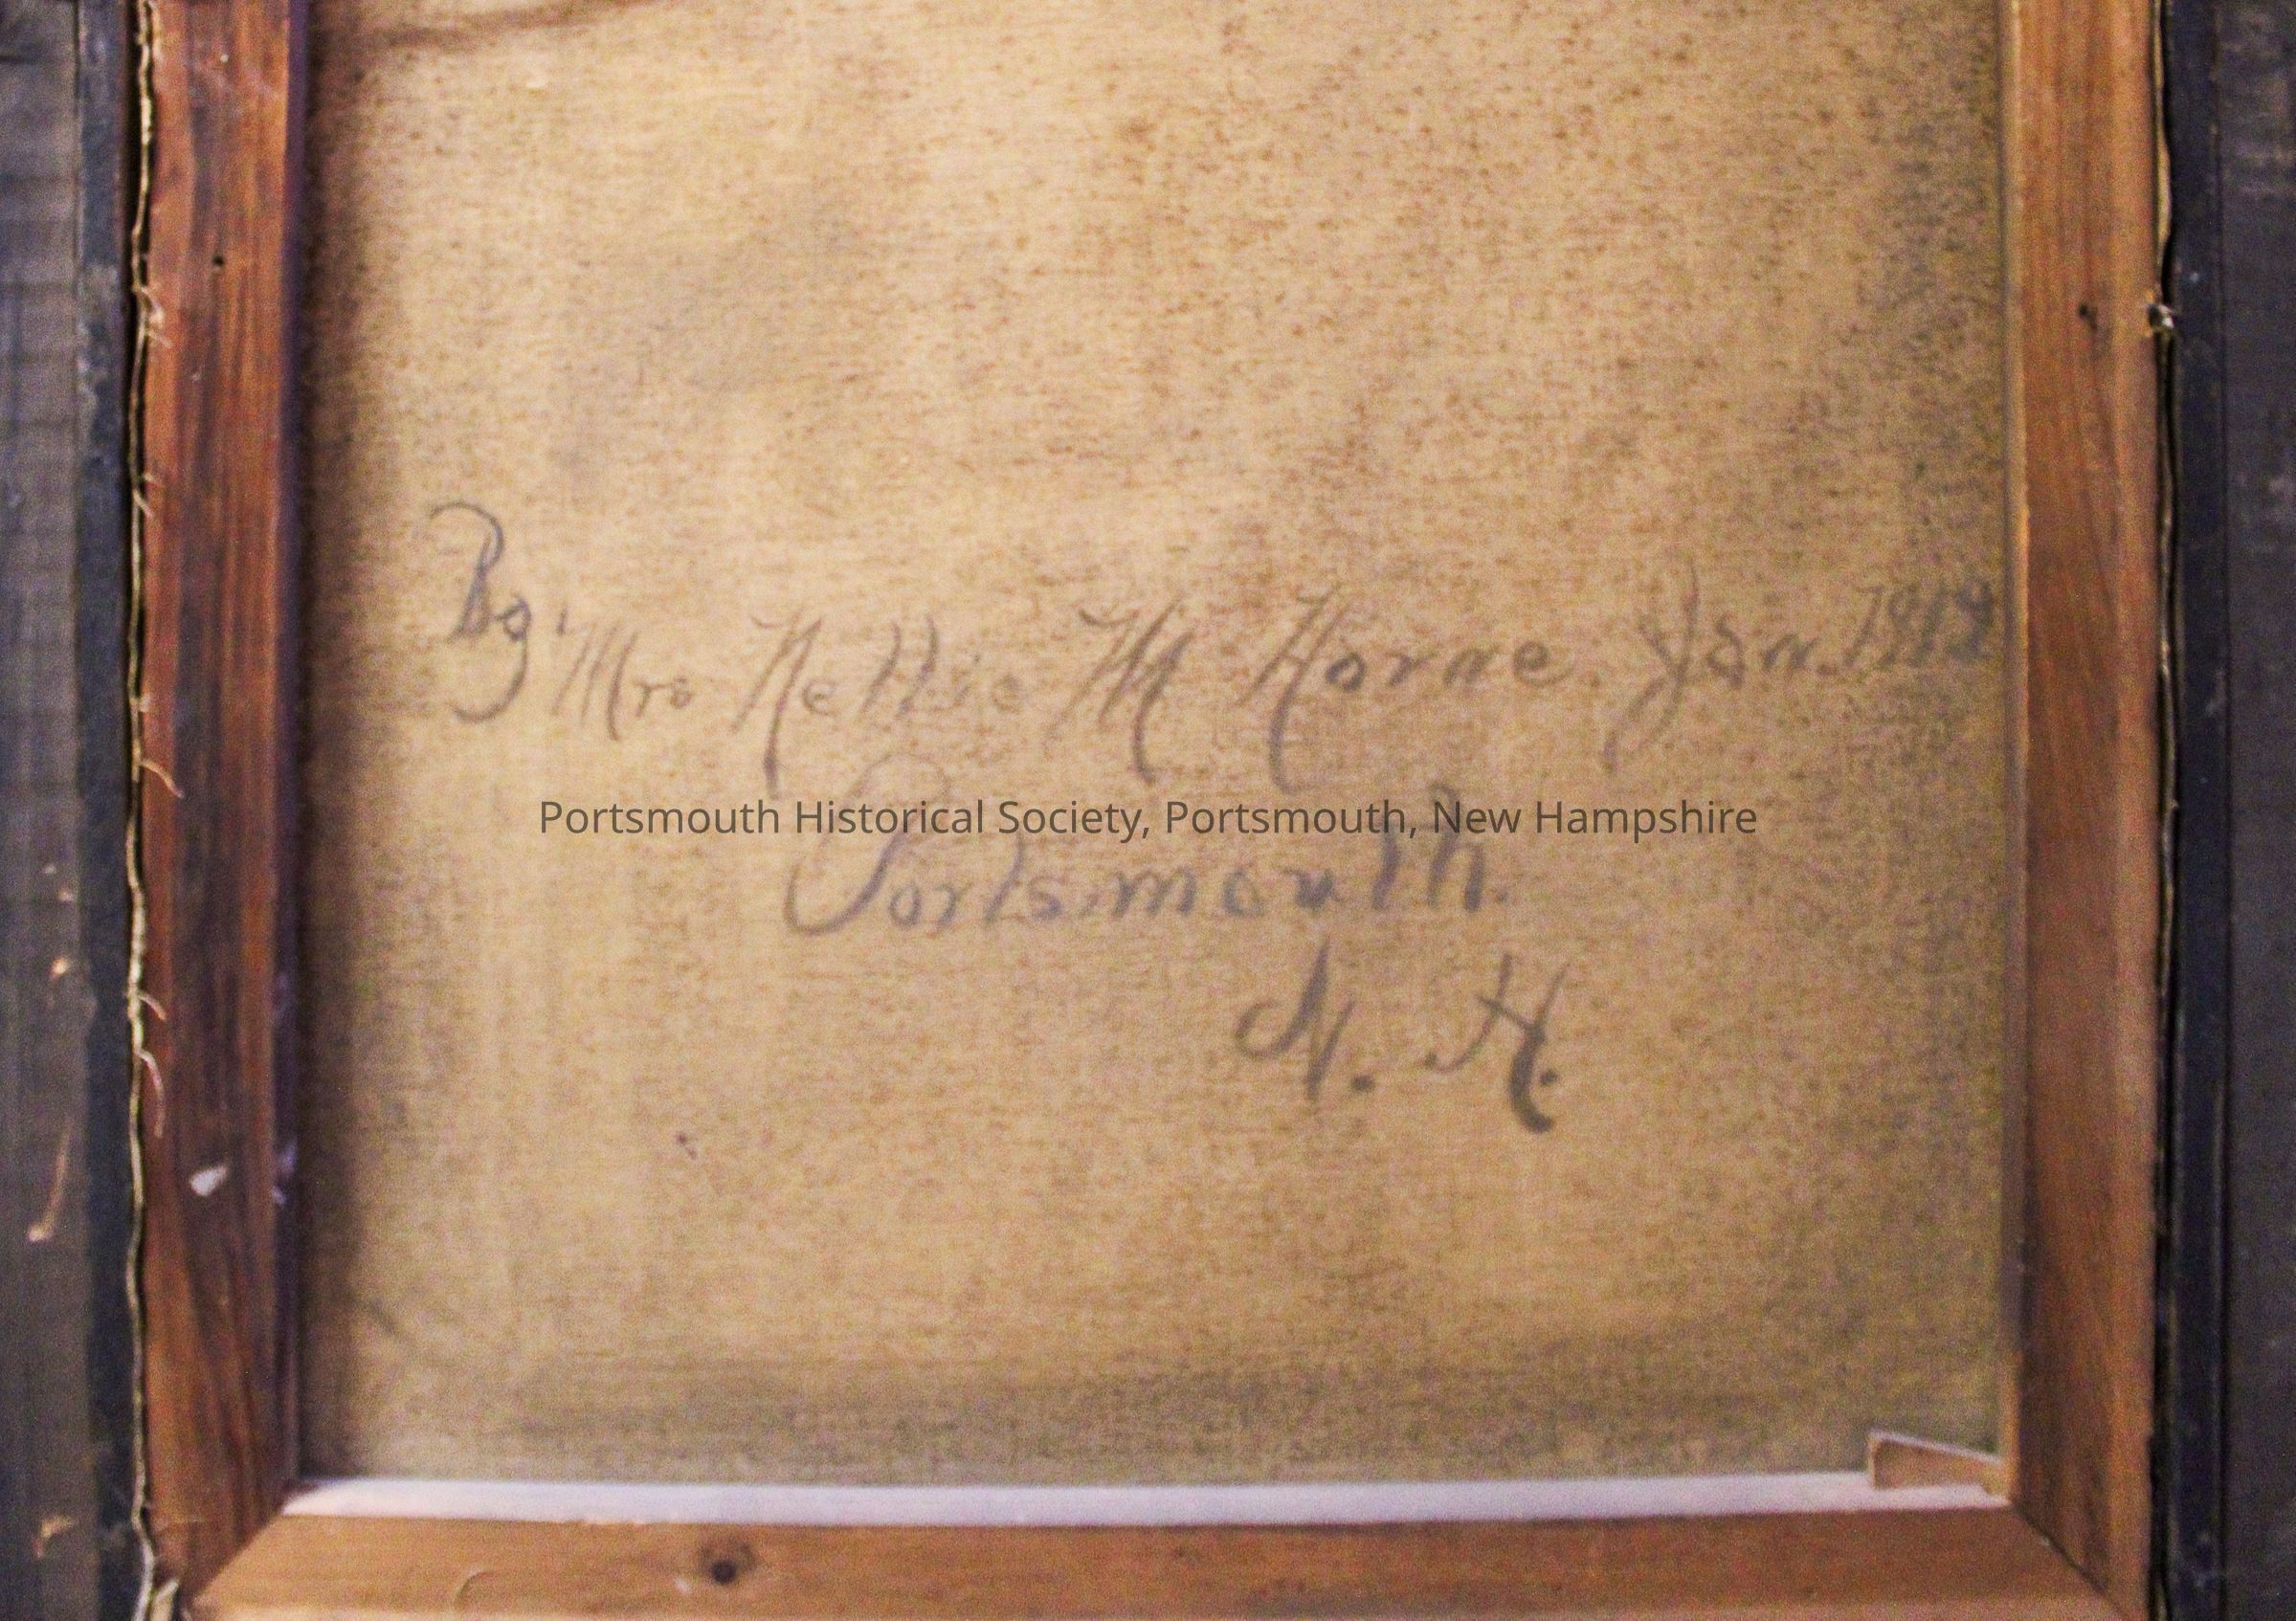 By. Mrs Nellie M Horne. Jan. 1912
Portsmouth Historical Society, Portsmouth, New Hampshire
Portsmouth.
N. H.